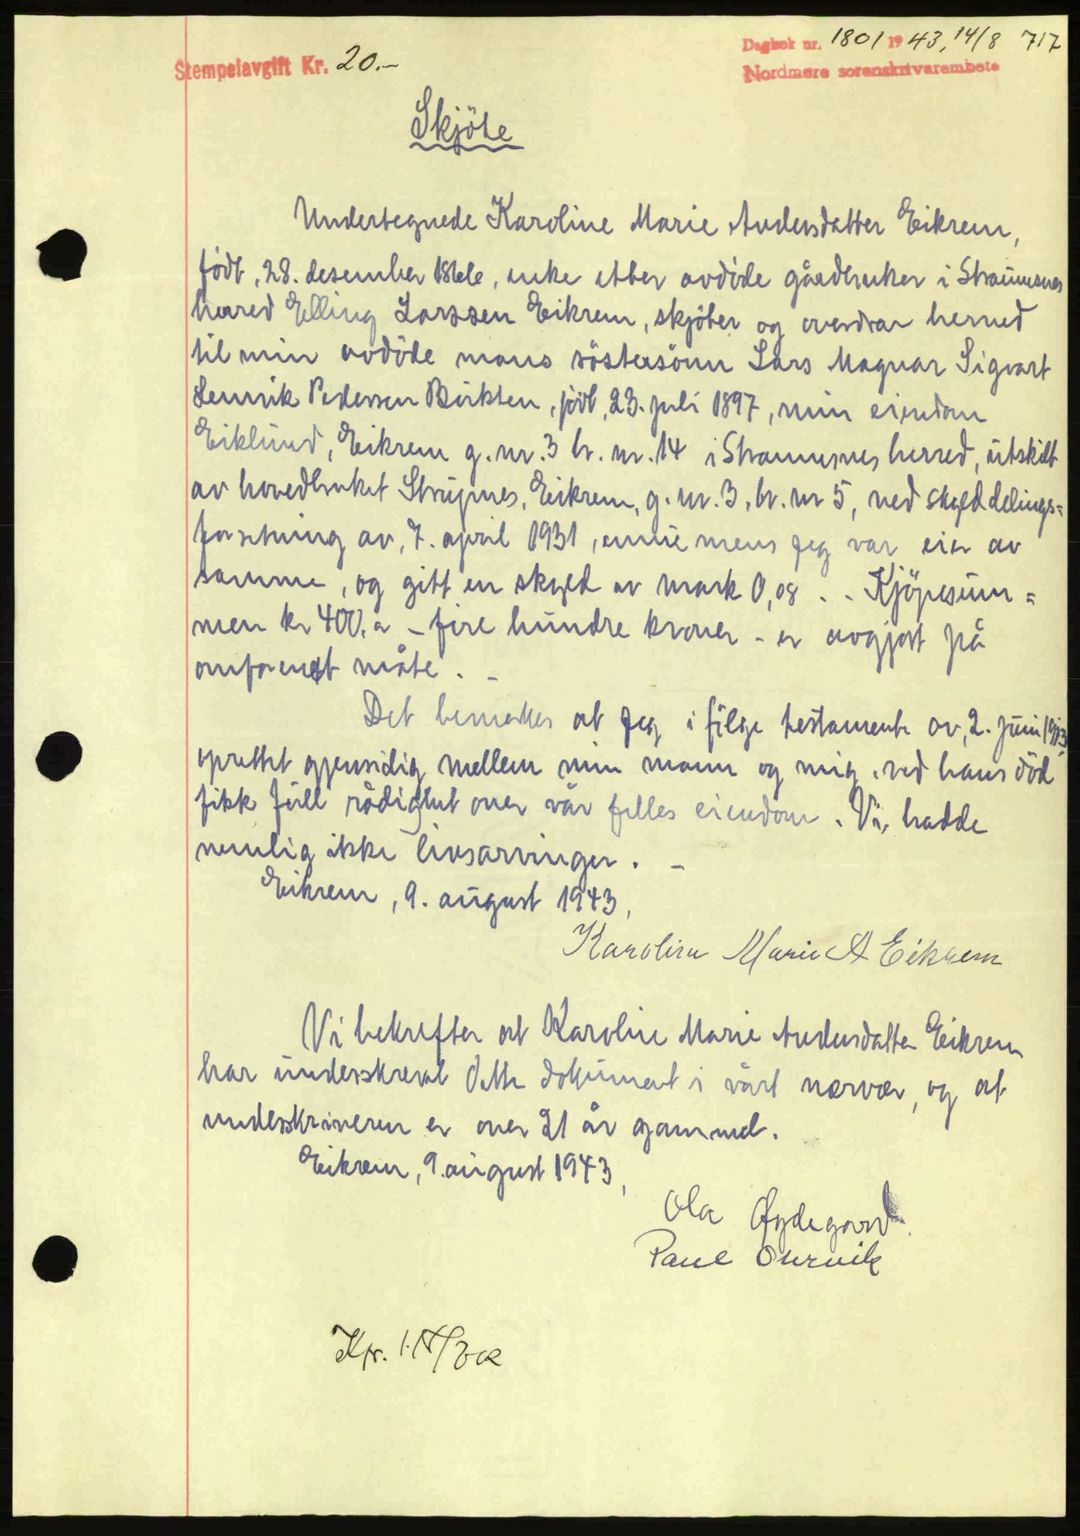 Stempelavgift Kr. 20.-
Dagbok nr. 1801 1943, 14/8 717
Nordmøre sorenskrivarembete
Skjöte
Undertegnede Karoline Marie Andersdatter Eikrem,
född, 28. desember 1866, enke etter avdöde gårdbruker i Straumsnes
herred Elling Larssen Eikrem, skjöter og overdrar herved
til min avdöde manns söstersönn Lars Magnar Sigvart
Henrik Pedersen Böikten, född, 23. juli 1897, min eiendom
Eiklund, Eikrem g. nr. 3 br. nr. 14 i Straumsnes herred, utskilt
av hovedbruket Strupnes, Eikrem, g. nr. 3, br. nr 5, ved skylddelings=
forretning av, 7. april 1931, ennu mens jeg var eier av
samme, og gitt en skyld av mark 0,08 . - Kjöpesum=
men kr 400,- - fire hundre kroner - er avgjort på
omforenet måte. -
Det bemerkes at jeg i fölge testamente av, 2. juni 1913
oprettet gjensidig mellem min mann og mig, ved hans död
fikk full rådighet over vår felles eiendom. Vi hadde
nemlig ikke livsarvinger. -
Eikrem, 9. august 1943,
Karoline Marie A Eikrem
Vi bekrefter at Karoline Marie Andersdatter Eikrem
har underskrevet dette dokument i vårt nærvær, og at
underskriveren er over 21 år gammel.
Eikrem, 9. august 1943,
Ola Øydegard.
Paul Ourvik
Kpr.